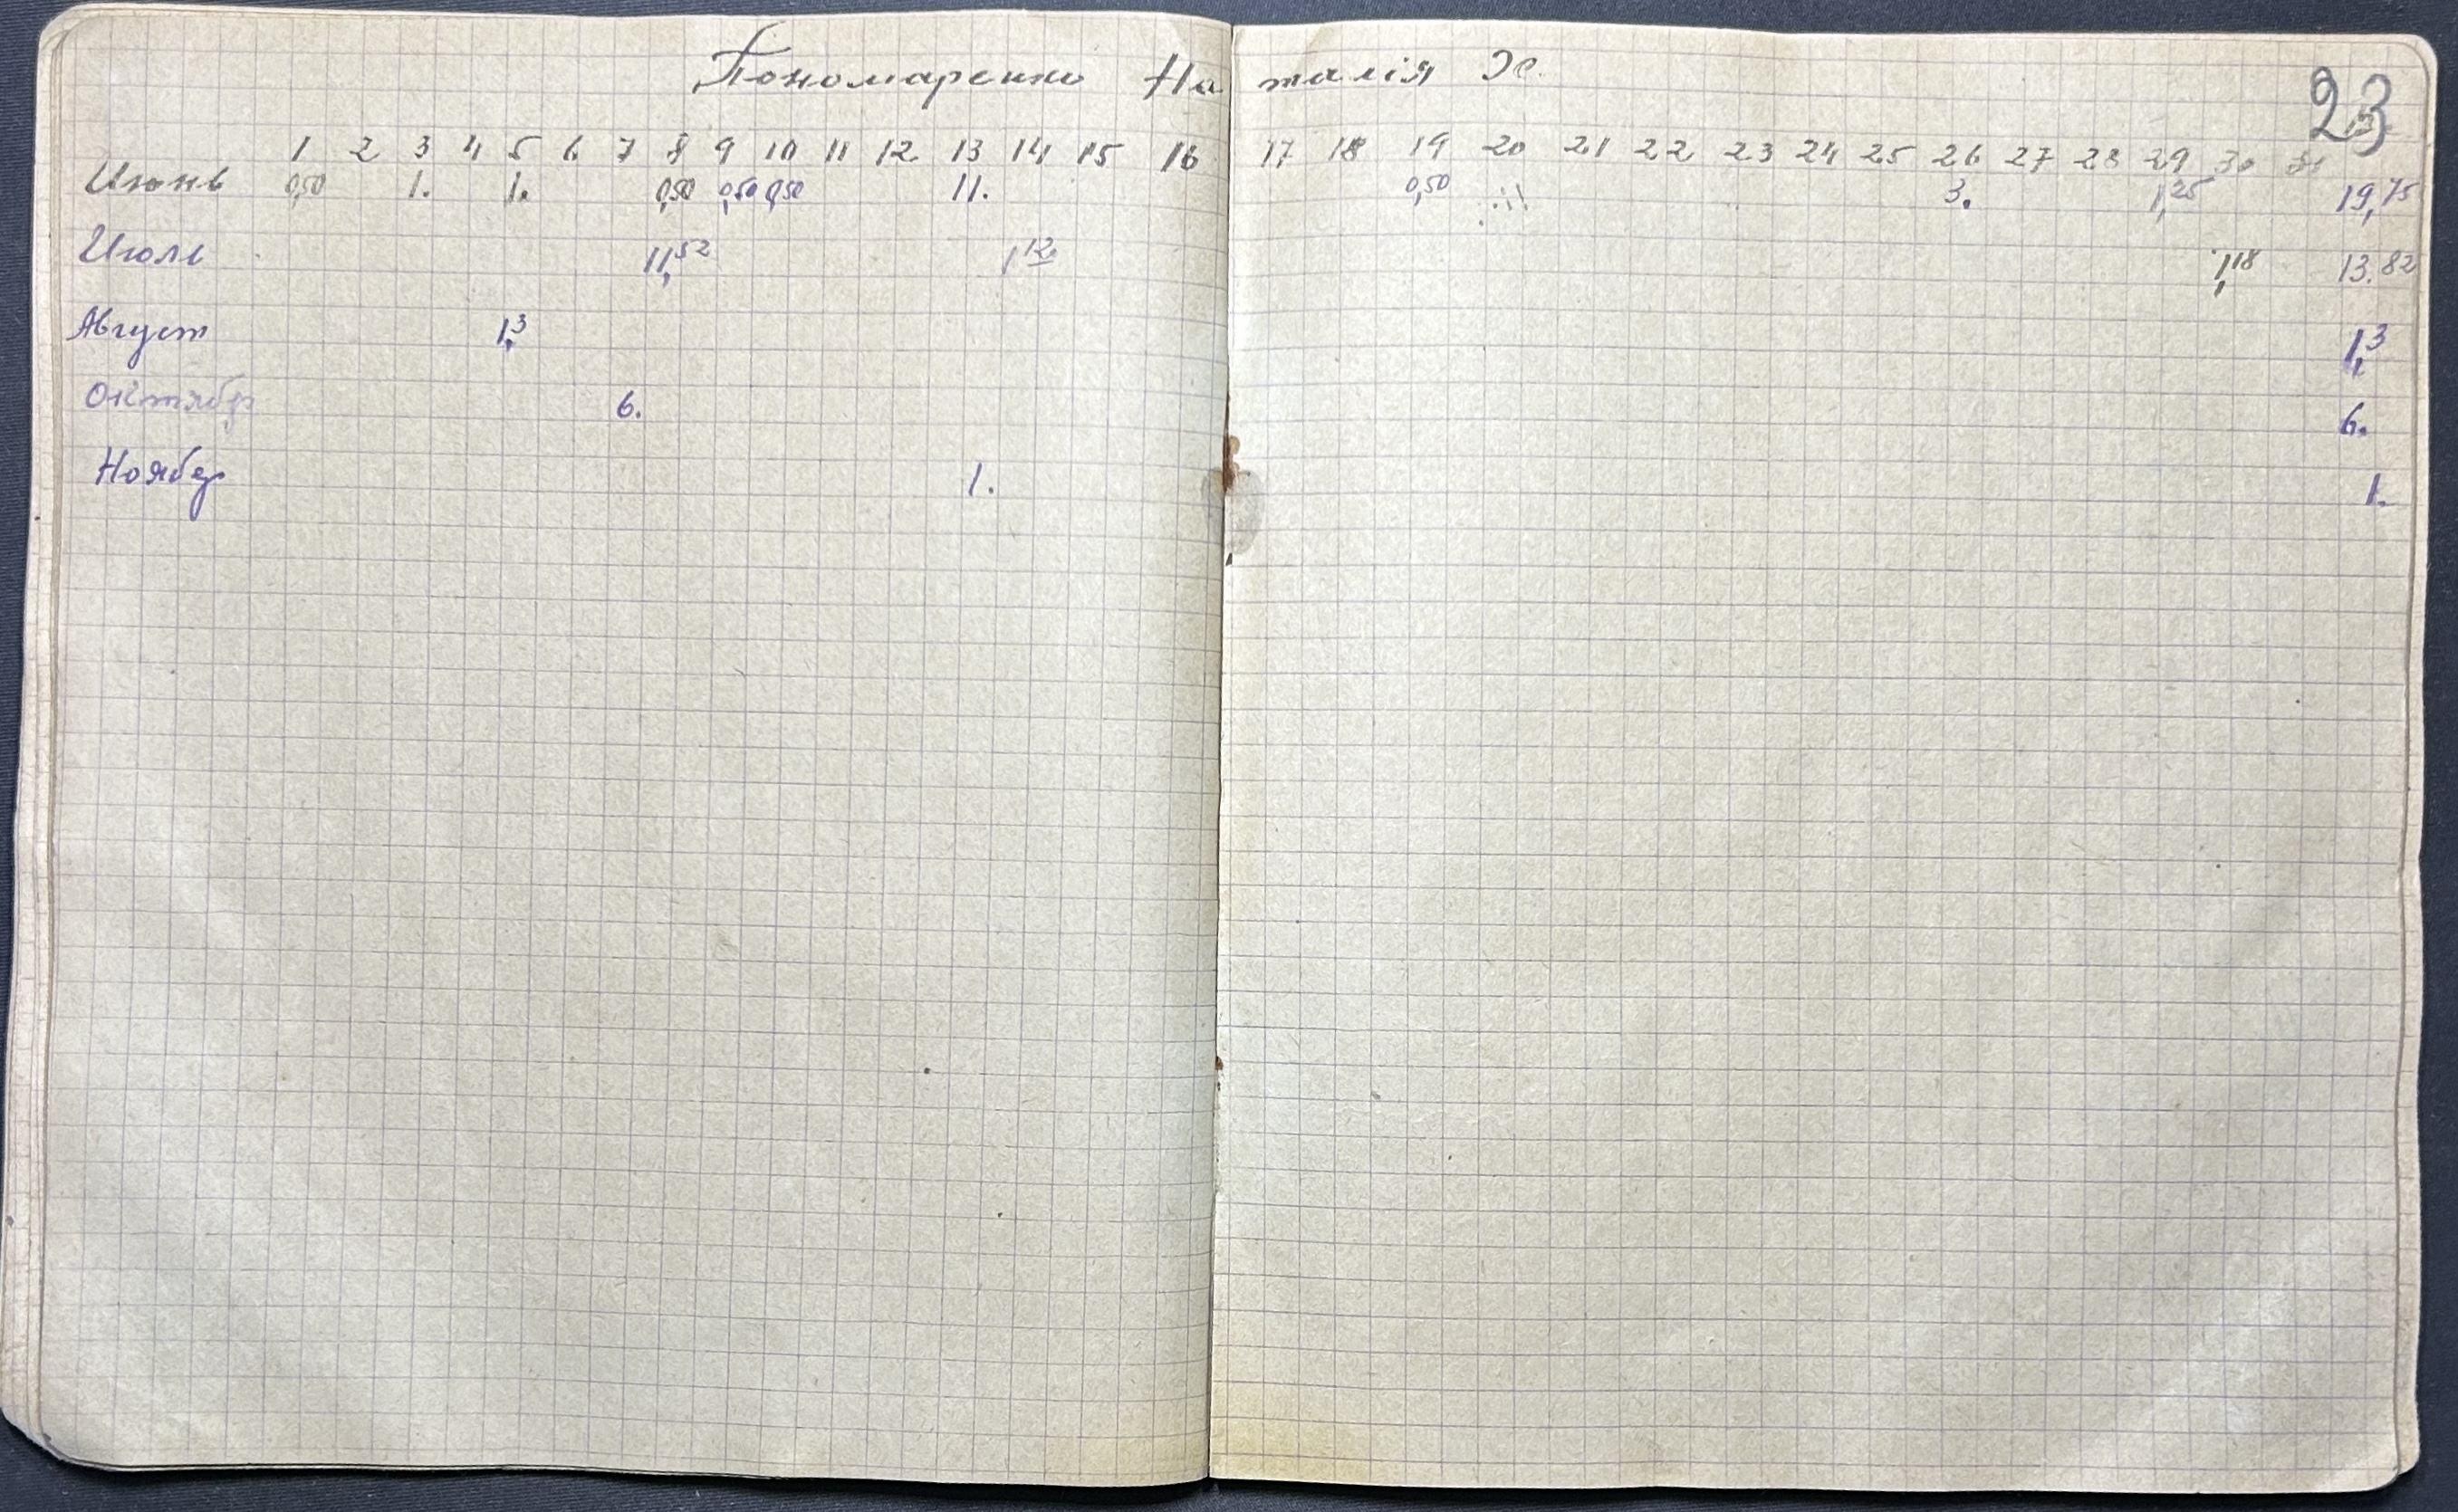 Пономаренко Наталія Х. 23
1 2 3 4 5 6 7 8 9 10 11 12 13 14 15 16 17 18 19 20 21 22 23 24 25 26 27 28 29 30 31
Июнь 0,50 1. 1. 0,50 0,50 0,50 11. 0,50 3. 1,25 19,75
Июль 11,52 1 12 1,18 13.82
Август 1,3 1,3
Октябр 6. 6.
Ноябр 1. 1.